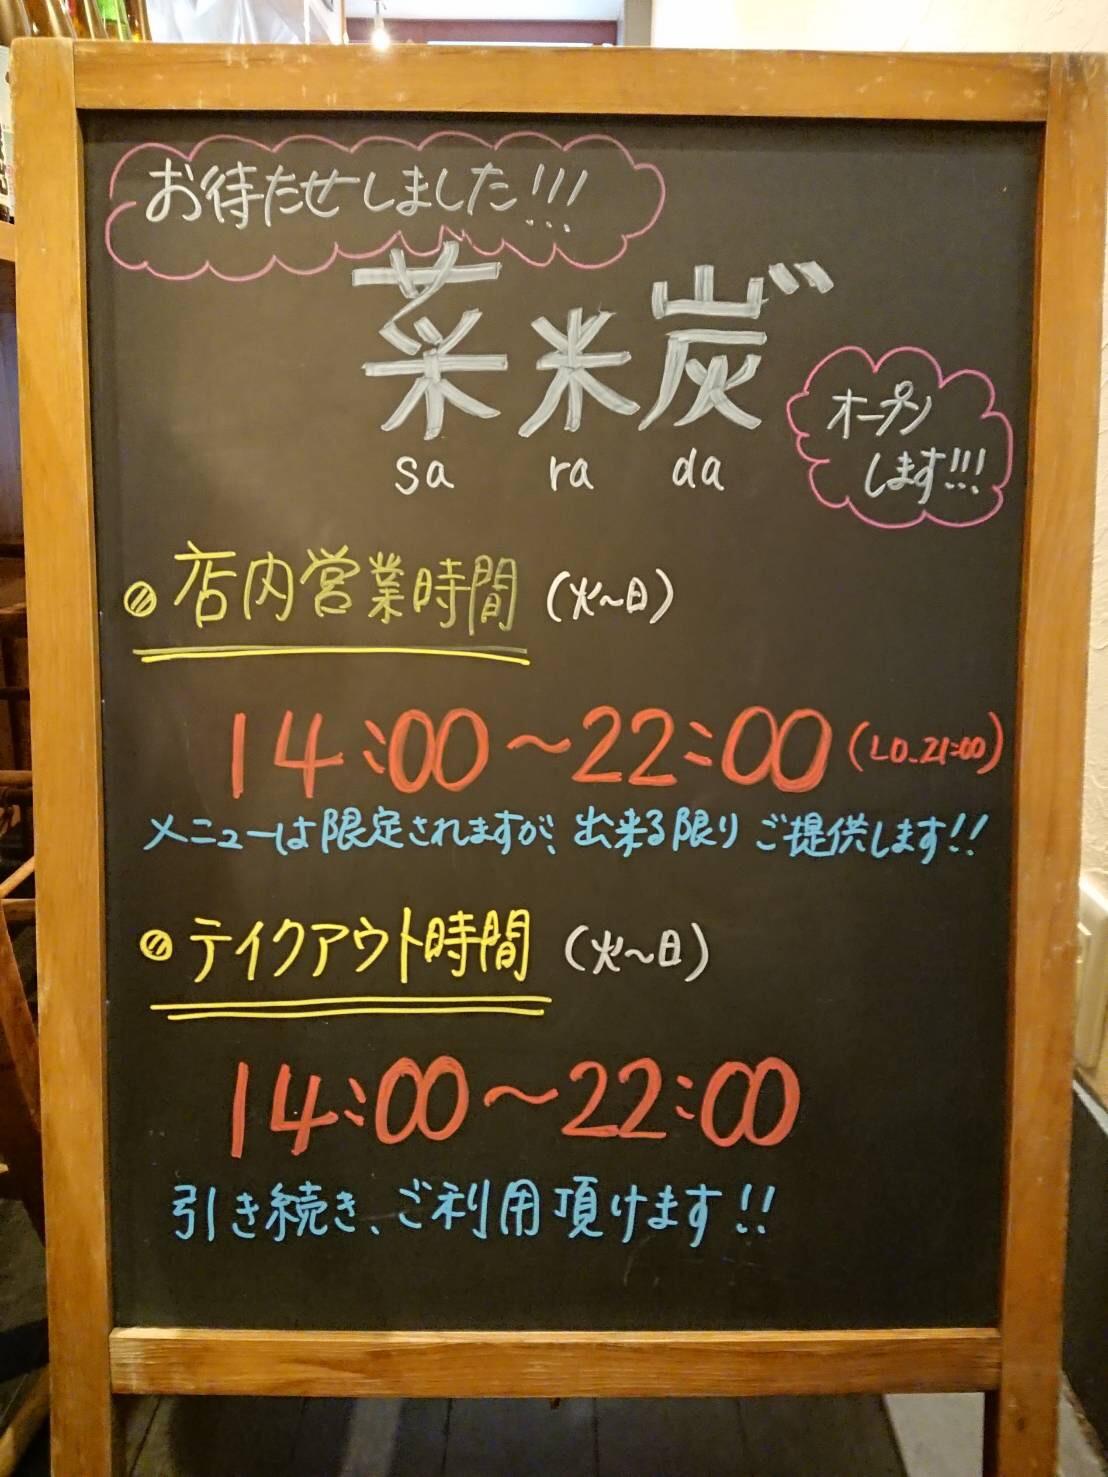 お待たせしました!!!
菜米炭゛
sa ra da
オープン
します!!!
店内営業時間 (火〜日)
14:00〜22:00 (LO.21:00)
メニューは限定されますが、出来る限りご提供します!!
テイクアウト時間 (火〜日)
14:00〜22:00
引き続き、ご利用頂けます!!